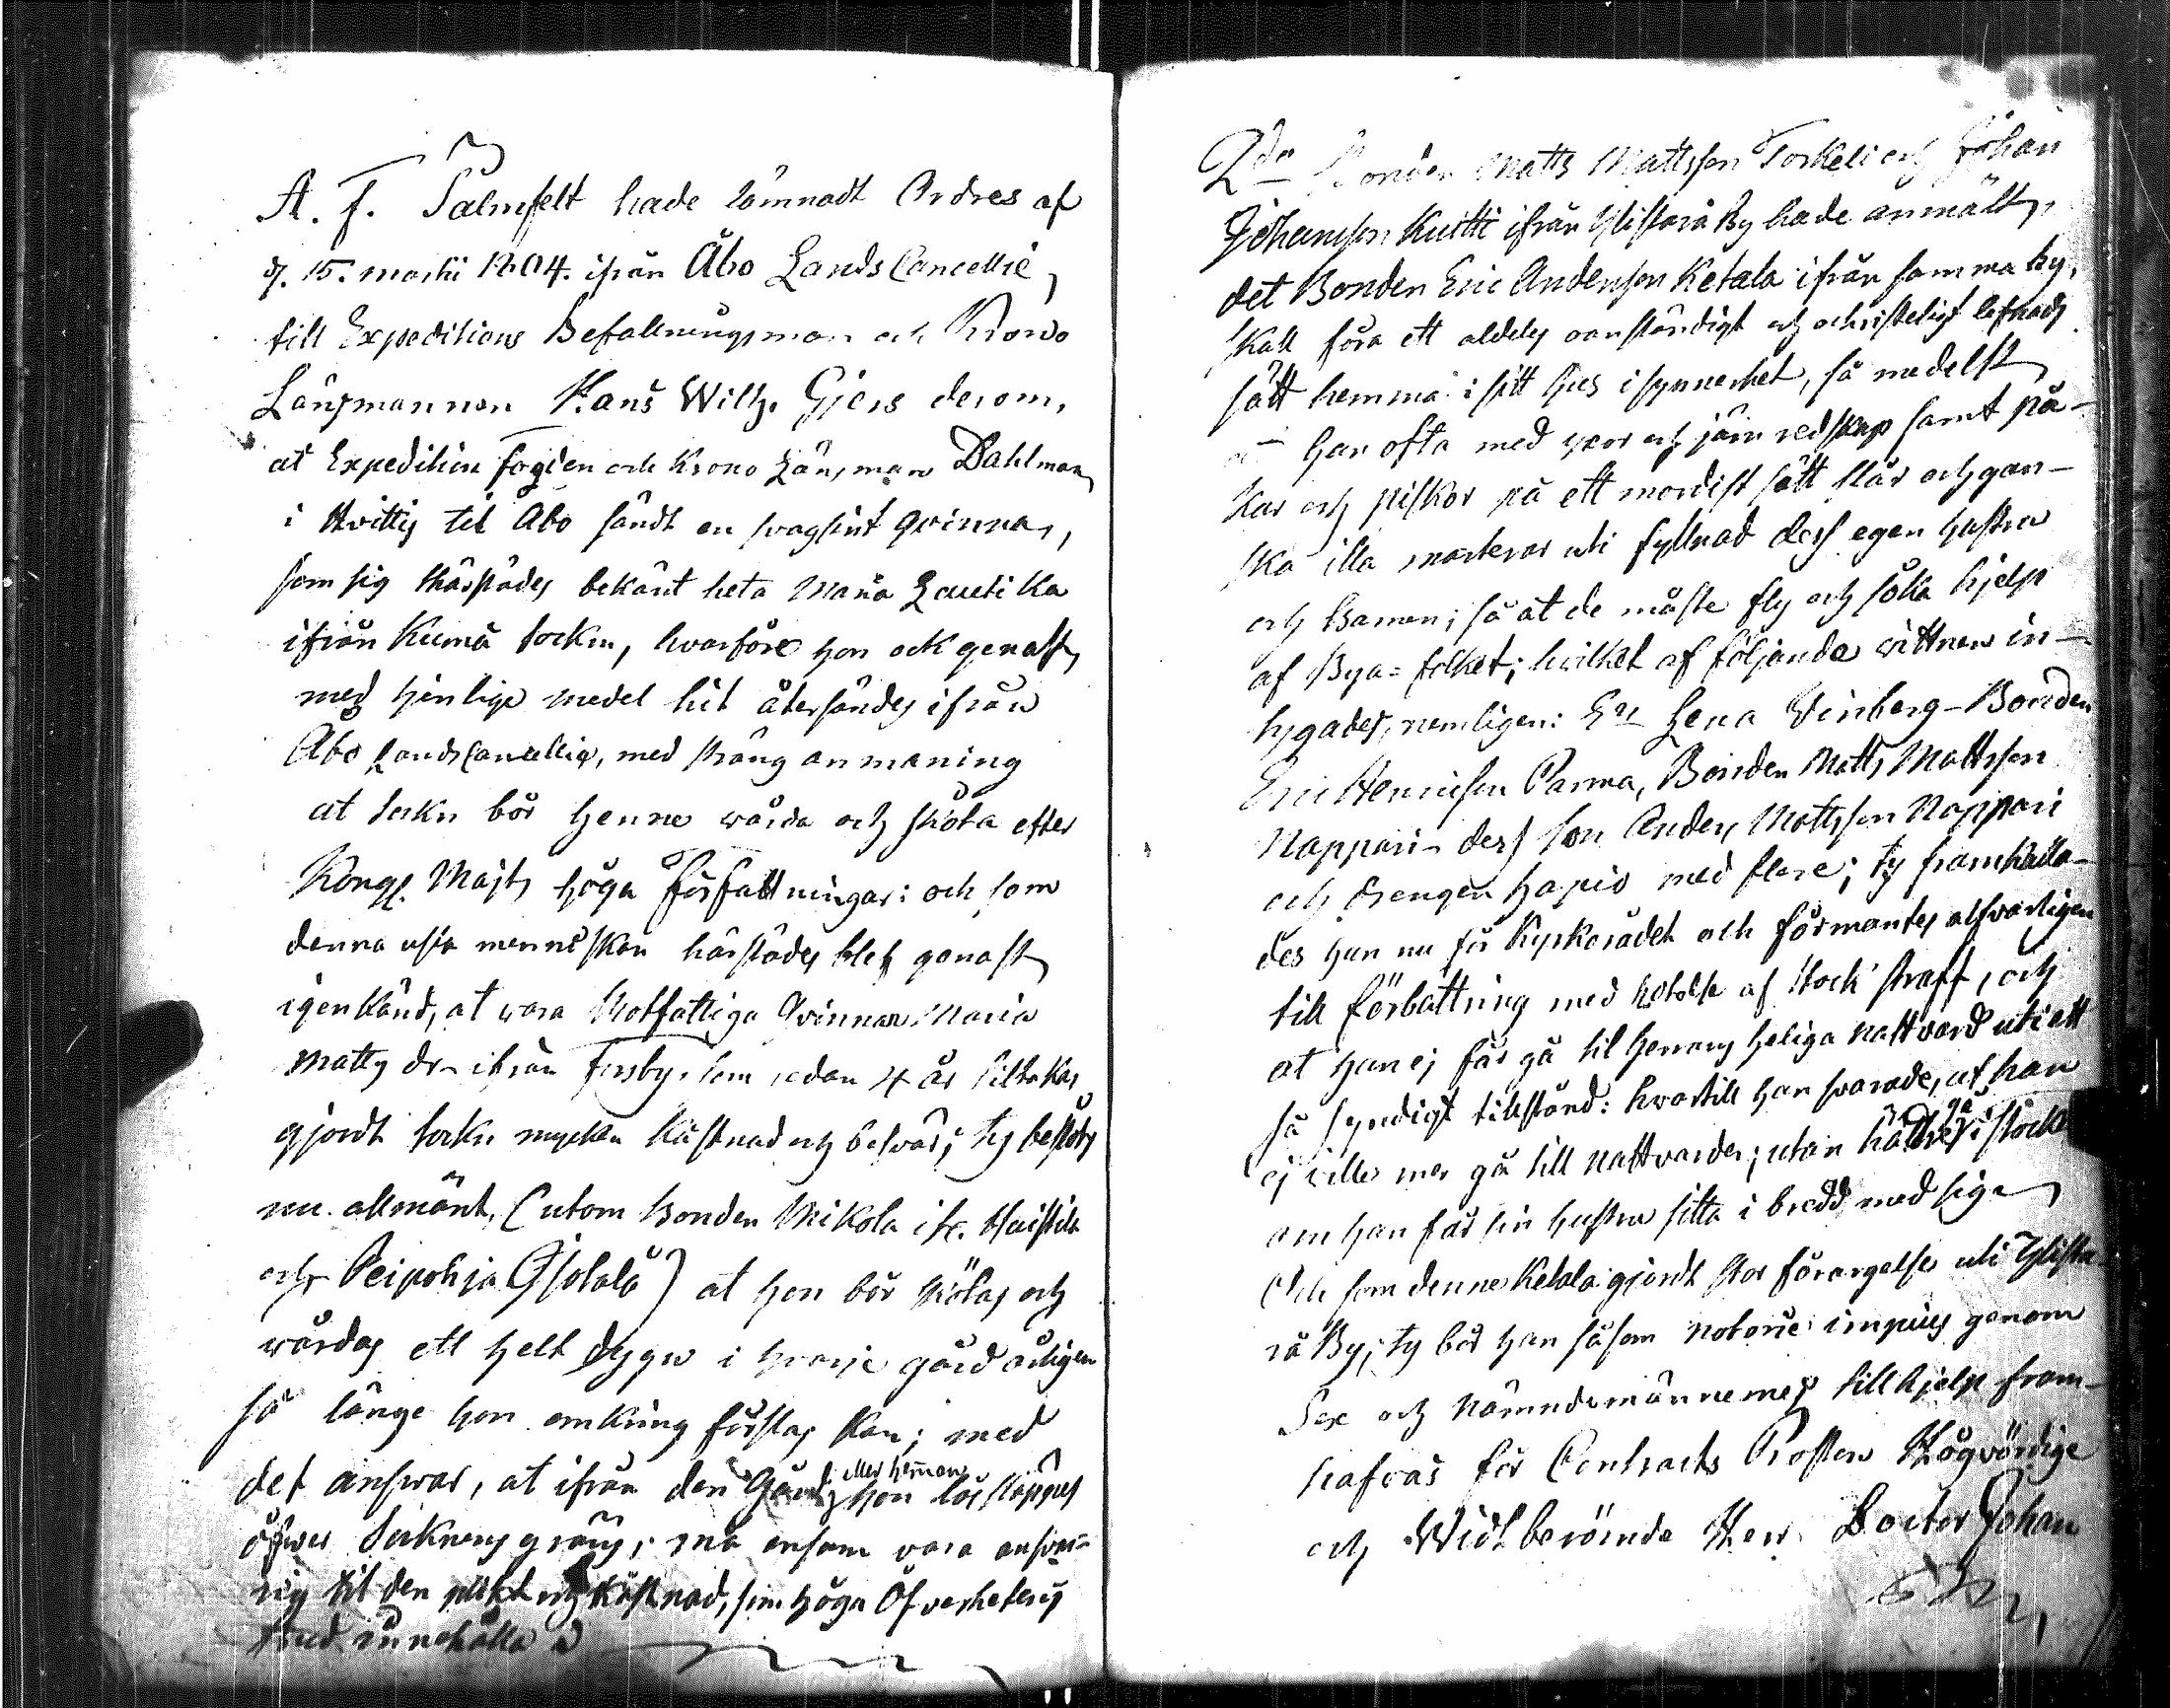 A. F. Palmfelt hade lämnadt Ordres af
d. 15. martii 1804. ifrån Åbo Lands Cancellie,
till Expeditions Befallningsman och Krono
Länsmannen Hans Wilh. Gjers derom,
at Expeditions fogden och Krono Länsman Dahlman
i Hvittis til Åbo sändt en svagsint Qvinna,
som sig thärstädes bekänt heta Maria Lautika
ifrån Kumå sockn, hvarföre hon ock genast
med henlige medel hit återsändes ifrån
Åbo LandsCancellie, med sträng anmaning
at sockn bör henne wårda och sköta efter
Kongl. Majts höga författningar: och som
denna usla menniskan härstädes blef genast
igenkänd, at vara Rotfattiga Qvinnan Maria
Matts dr ifrån Forsby, som sedan 4 år tillbakas
gjordt sockn mycken kåstnad och besvär; ty beslöts
nu allmänt, (utom Bonden Mikola ifr. Haistila
och Peipohja Isotalo) at hon bör skötas och
wårdas ett helt dygn i hvarje gård årligen
så länge hon omkring förslas kan; med
det answar, at ifrån den Gård eller heman hon lös släppes
öfwer Socknens gräns, må ensam vara ansva-
rig til den plikt och kåstnad, som höga Öfverhetens
bud innehålla
2do Bonden Matts Mattsson Torkeli och Johan
Johansson Kuitti ifrån Ylistaro By hade anmält,
det Bonden Eric Andersson Ketala ifrån samma by,
skall föra ett aldeles oanständigt och ochristeligt lefnads
sätt hemma i sitt hus i synnerhet, så medelst
at han ofta med yxor och järn redskap samt på-
kar och piskor på ett mordiskt sätt slår och gan-
ska illa marterar uti fyllnad dess egen hustru
och Barnen; så at de måste fly och söka hjelp
af Bya-folket; hvilket af följande vittnen in-
tygades, nemligen: Lena Winberg - Bonden
Eric Henricsson Parma, Bonden Matts Mattsson
Nappari - dess son Anders Mattsson Nappari
och Drengen Hapio med flere; ty framkalla-
des han nu för Kyrkorådet och förmantes alfvarligen
till förbättring med hotelse af stock straff, och
at han ej får gå til Herrans heliga nattvard uti ett
så syndigt tillstånd: hvartill han svarade, at han
ej ville mer gå till nattvarden; utan hälldre gå i stock
om han får sin hustru sitta i bredd med sig.
Och som denne Ketala gjordt stor förargelse uti Ylista-
ro By; ty bör han såsom notorie impius genom
Sex och Nämndemännernes tillhjelp fram-
hafvas för Contracts Prosten Högvördige
och Widt berömde Herr Doctor Johan